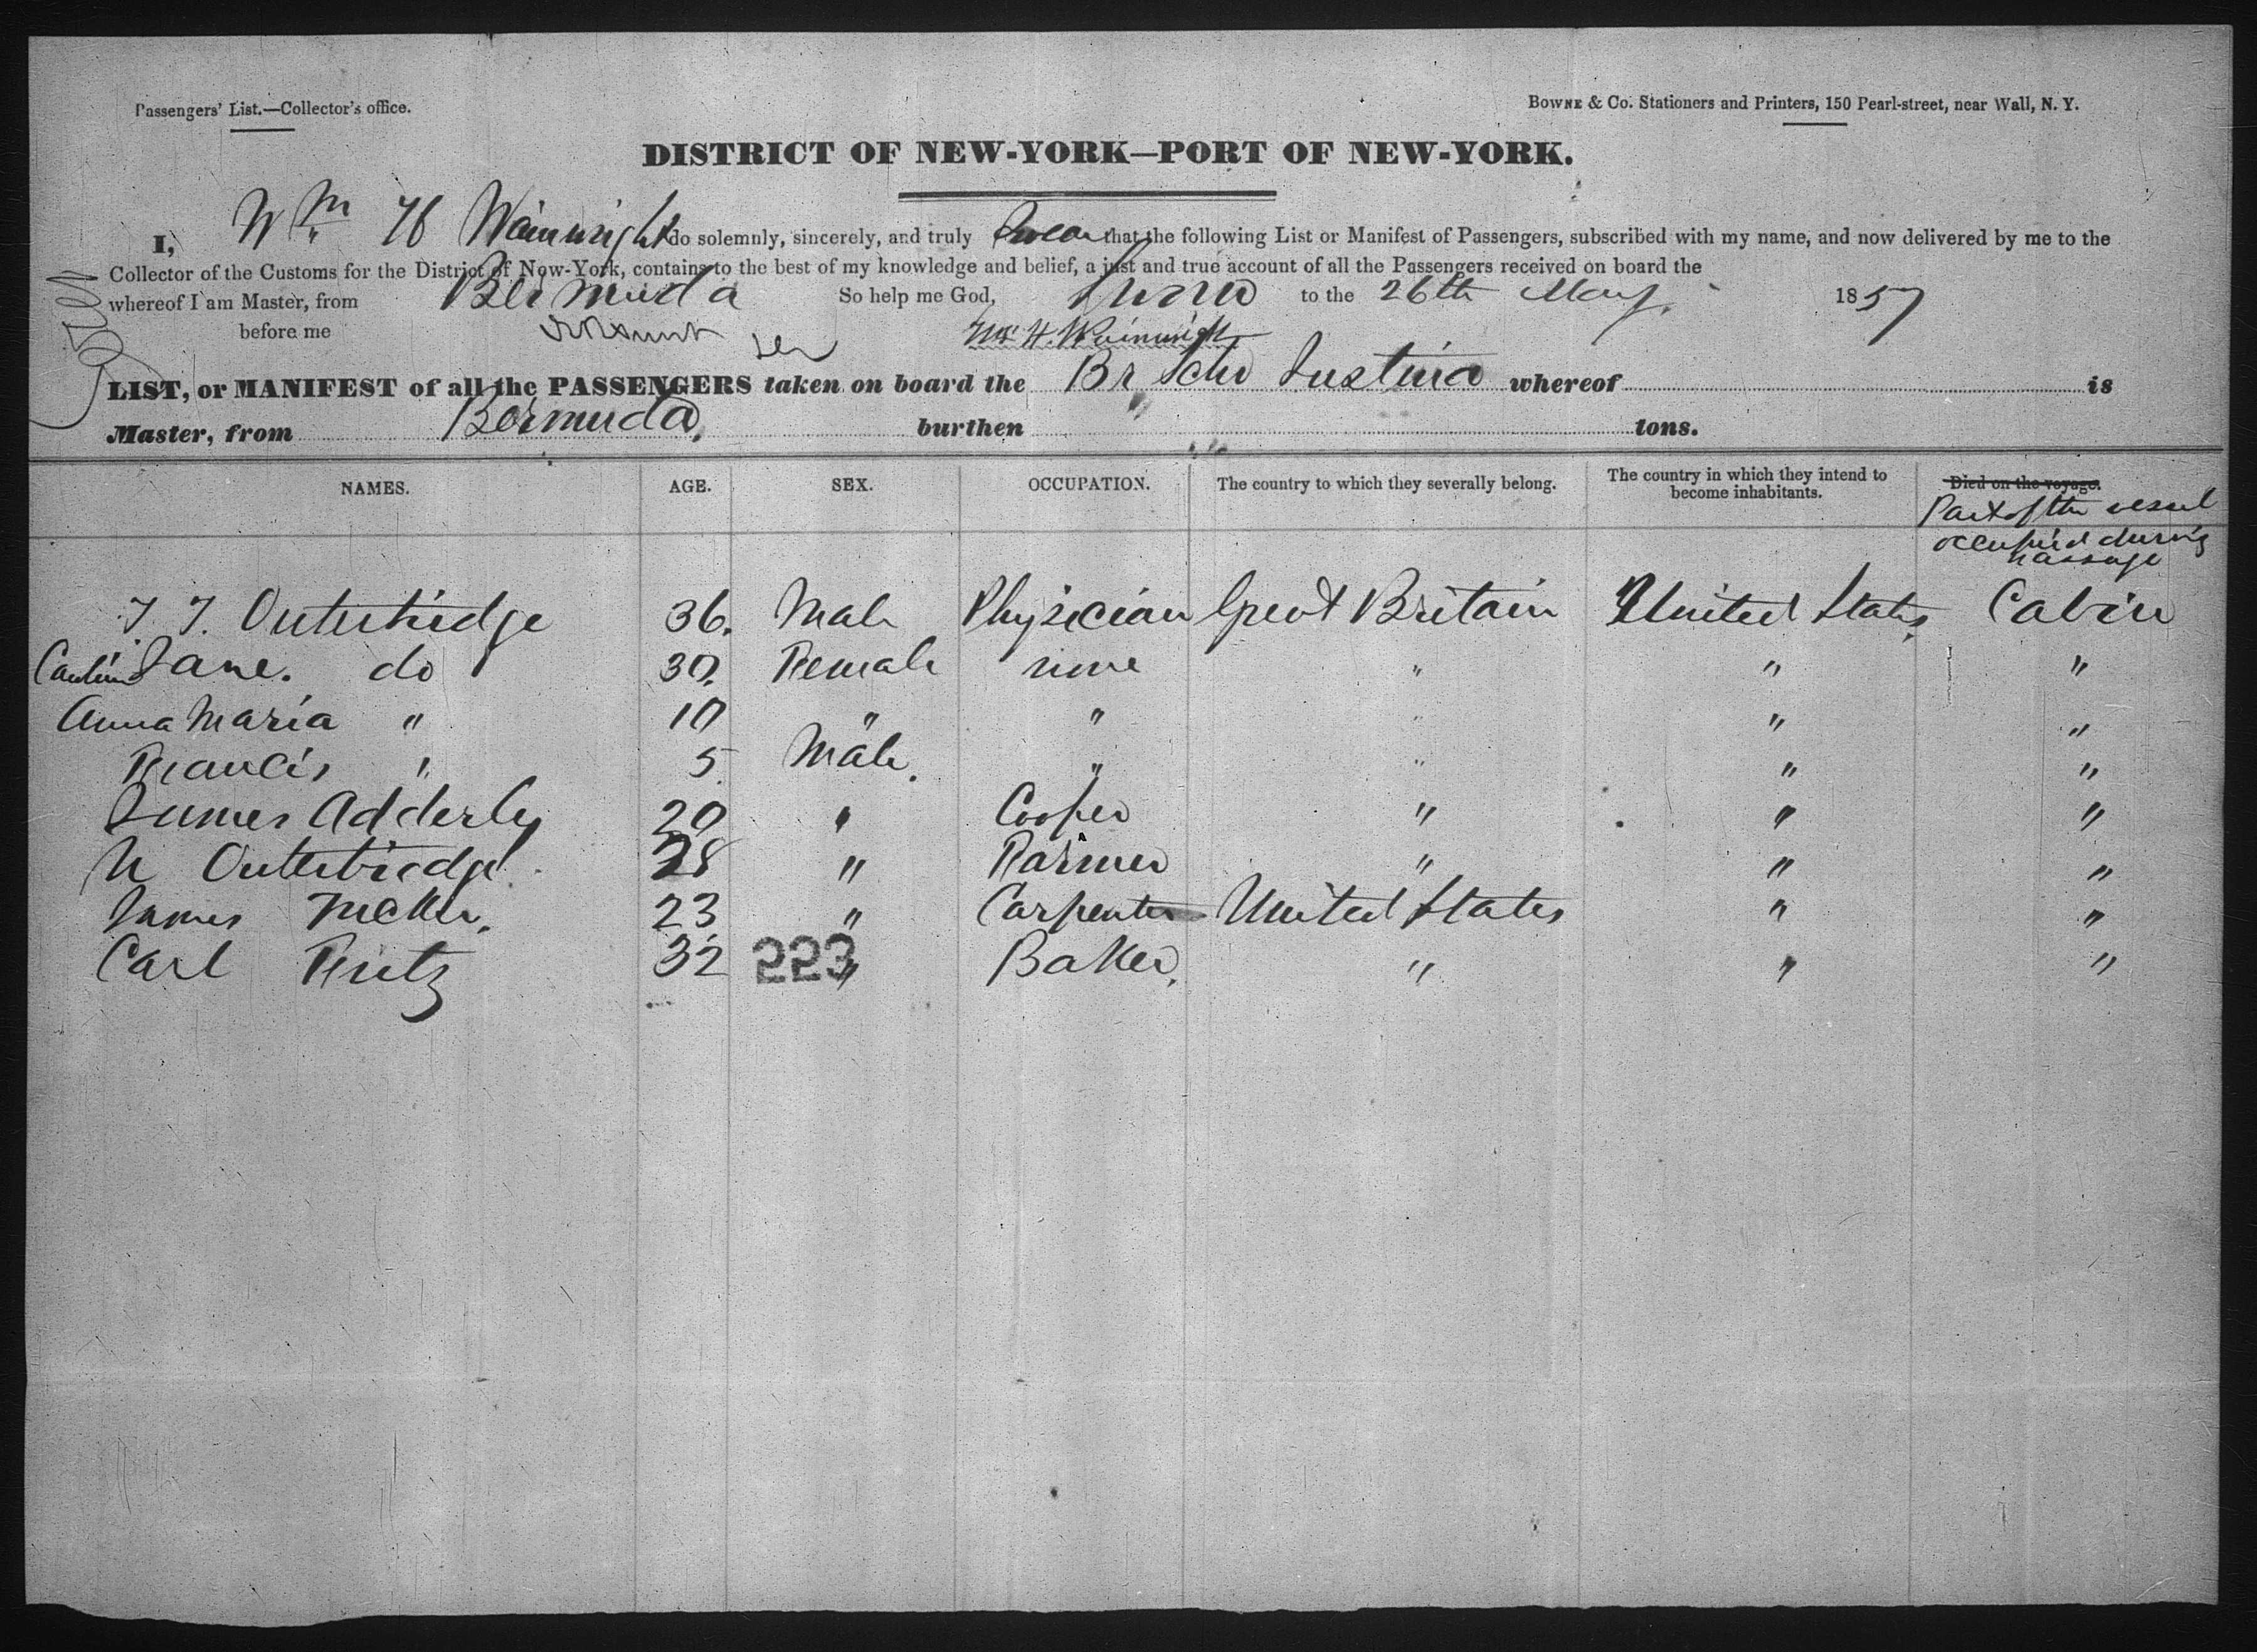 Passengers' List.—Collector's office.
BOWNE & Co. Stationers and Printers, 150 Pearl-street, near Wall, N. Y.
DISTRICT OF NEW-YORK—PORT OF NEW-YORK.
I, Wm H Wainwright do solemnly, sincerely, and truly Swear that the following List or Manifest of Passengers, subscribed with my name, and now delivered by me to the
Collector of the Customs for the District of New-York, contains to the best of my knowledge and belief, a just and true account of all the Passengers received on board the
whereof I am Master, from Bermuda So help me God, Sworn to the 26th May. 1857
before me Wm H. Wainwright
LIST, or MANIFEST of all the PASSENGERS taken on board the Br Schr Justina whereof is
Master, from Bermuda. burthen tons.
NAMES. AGE. SEX. OCCUPATION. The country to which they severally belong. The country in which they intend to become inhabitants. Died on the voyage.
Part of the vessel
occupied during
passage
T. T. Outerbridge 36. Male Physician Great Britain United States Cabin
Caroline Jane. do 30. Female none " " "
Anna Maria " 10 " " " " "
Francis " 5 Male. " " " "
James Adderly 20 " Cooper " " "
N Outerbridge 28 " Farmer " " "
James 23 " Carpenter United States " "
Carl Fritz 32 " Baker. " " "
223